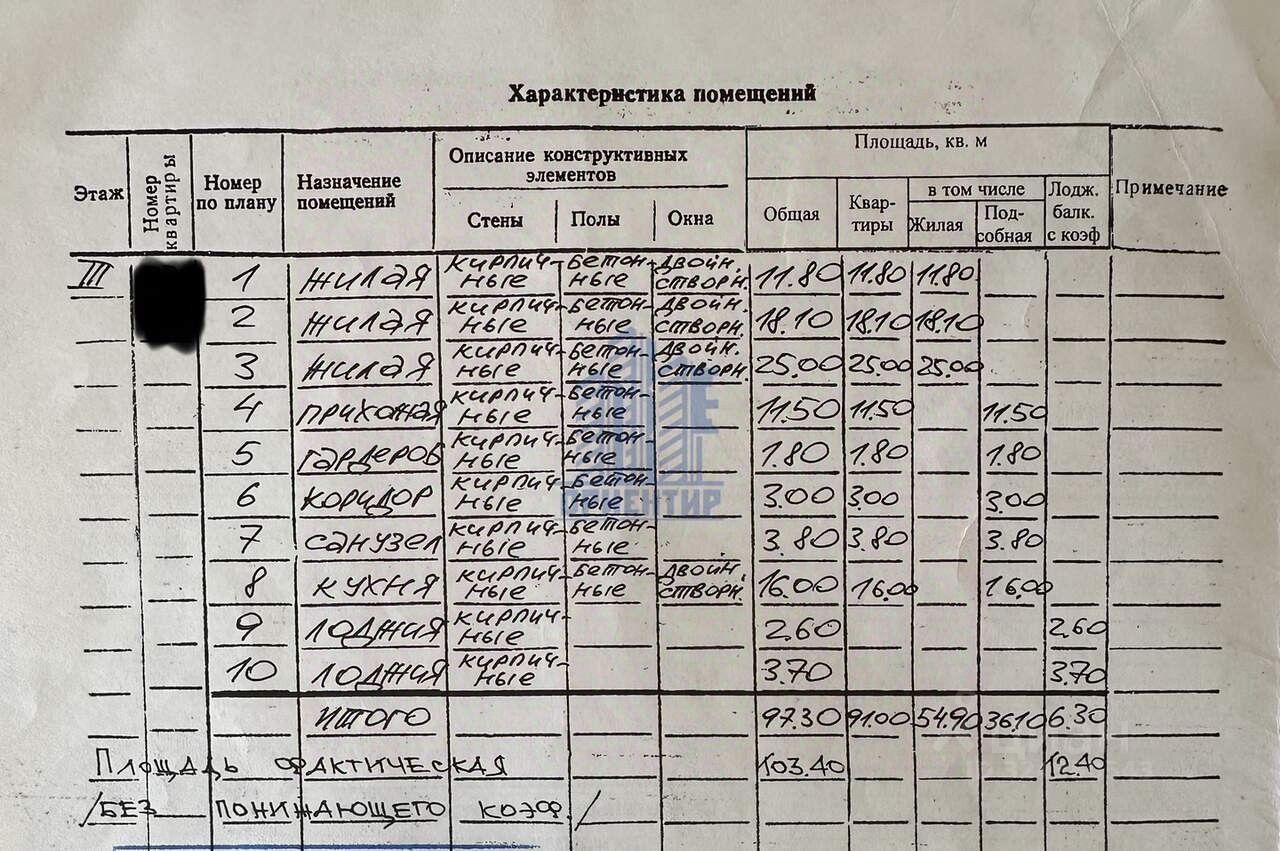 Характеристика помещений
Этаж | Номер квартиры | Номер по плану | Назначение помещений | Описание конструктивных элементов | Площадь, кв. м | Примечание
Стены | Полы | Окна | Общая | Квар-тиры | в том числе | Лодж. балк. с коэф
Жилая | Под-собная
III | 1 | жилая | кирпич-ные | бетон-ные | двойн. створн. | 11.80 | 11.80 | 11.80
2 | жилая | кирпич-ные | бетон-ные | двойн. створн. | 18.10 | 18.10 | 18.10
3 | жилая | кирпич-ные | бетон-ные | двойн. створн. | 25.00 | 25.00 | 25.00
4 | прихожая | кирпич-ные | бетон-ные | 11.50 | 11.50 | 11.50
5 | гардероб | кирпич-ные | бетон-ные | 1.80 | 1.80 | 1.80
6 | коридор | кирпич-ные | бетон-ные | 3.00 | 3.00 | 3.00
7 | санузел | кирпич-ные | бетон-ные | 3.80 | 3.80 | 3.80
8 | кухня | кирпич-ные | бетон-ные | двойн. створн. | 16.00 | 16.00 | 16.00
9 | лоджия | кирпич-ные | 2.60 | 2.60
10 | лоджия | кирпич-ные | 3.70 | 3.70
итого | 97.30 | 91.00 | 54.90 | 36.10 | 6.30
Площадь фактическая | 103.40 | 12.40
/без понижающего коэф./
ОРИЕНТИР